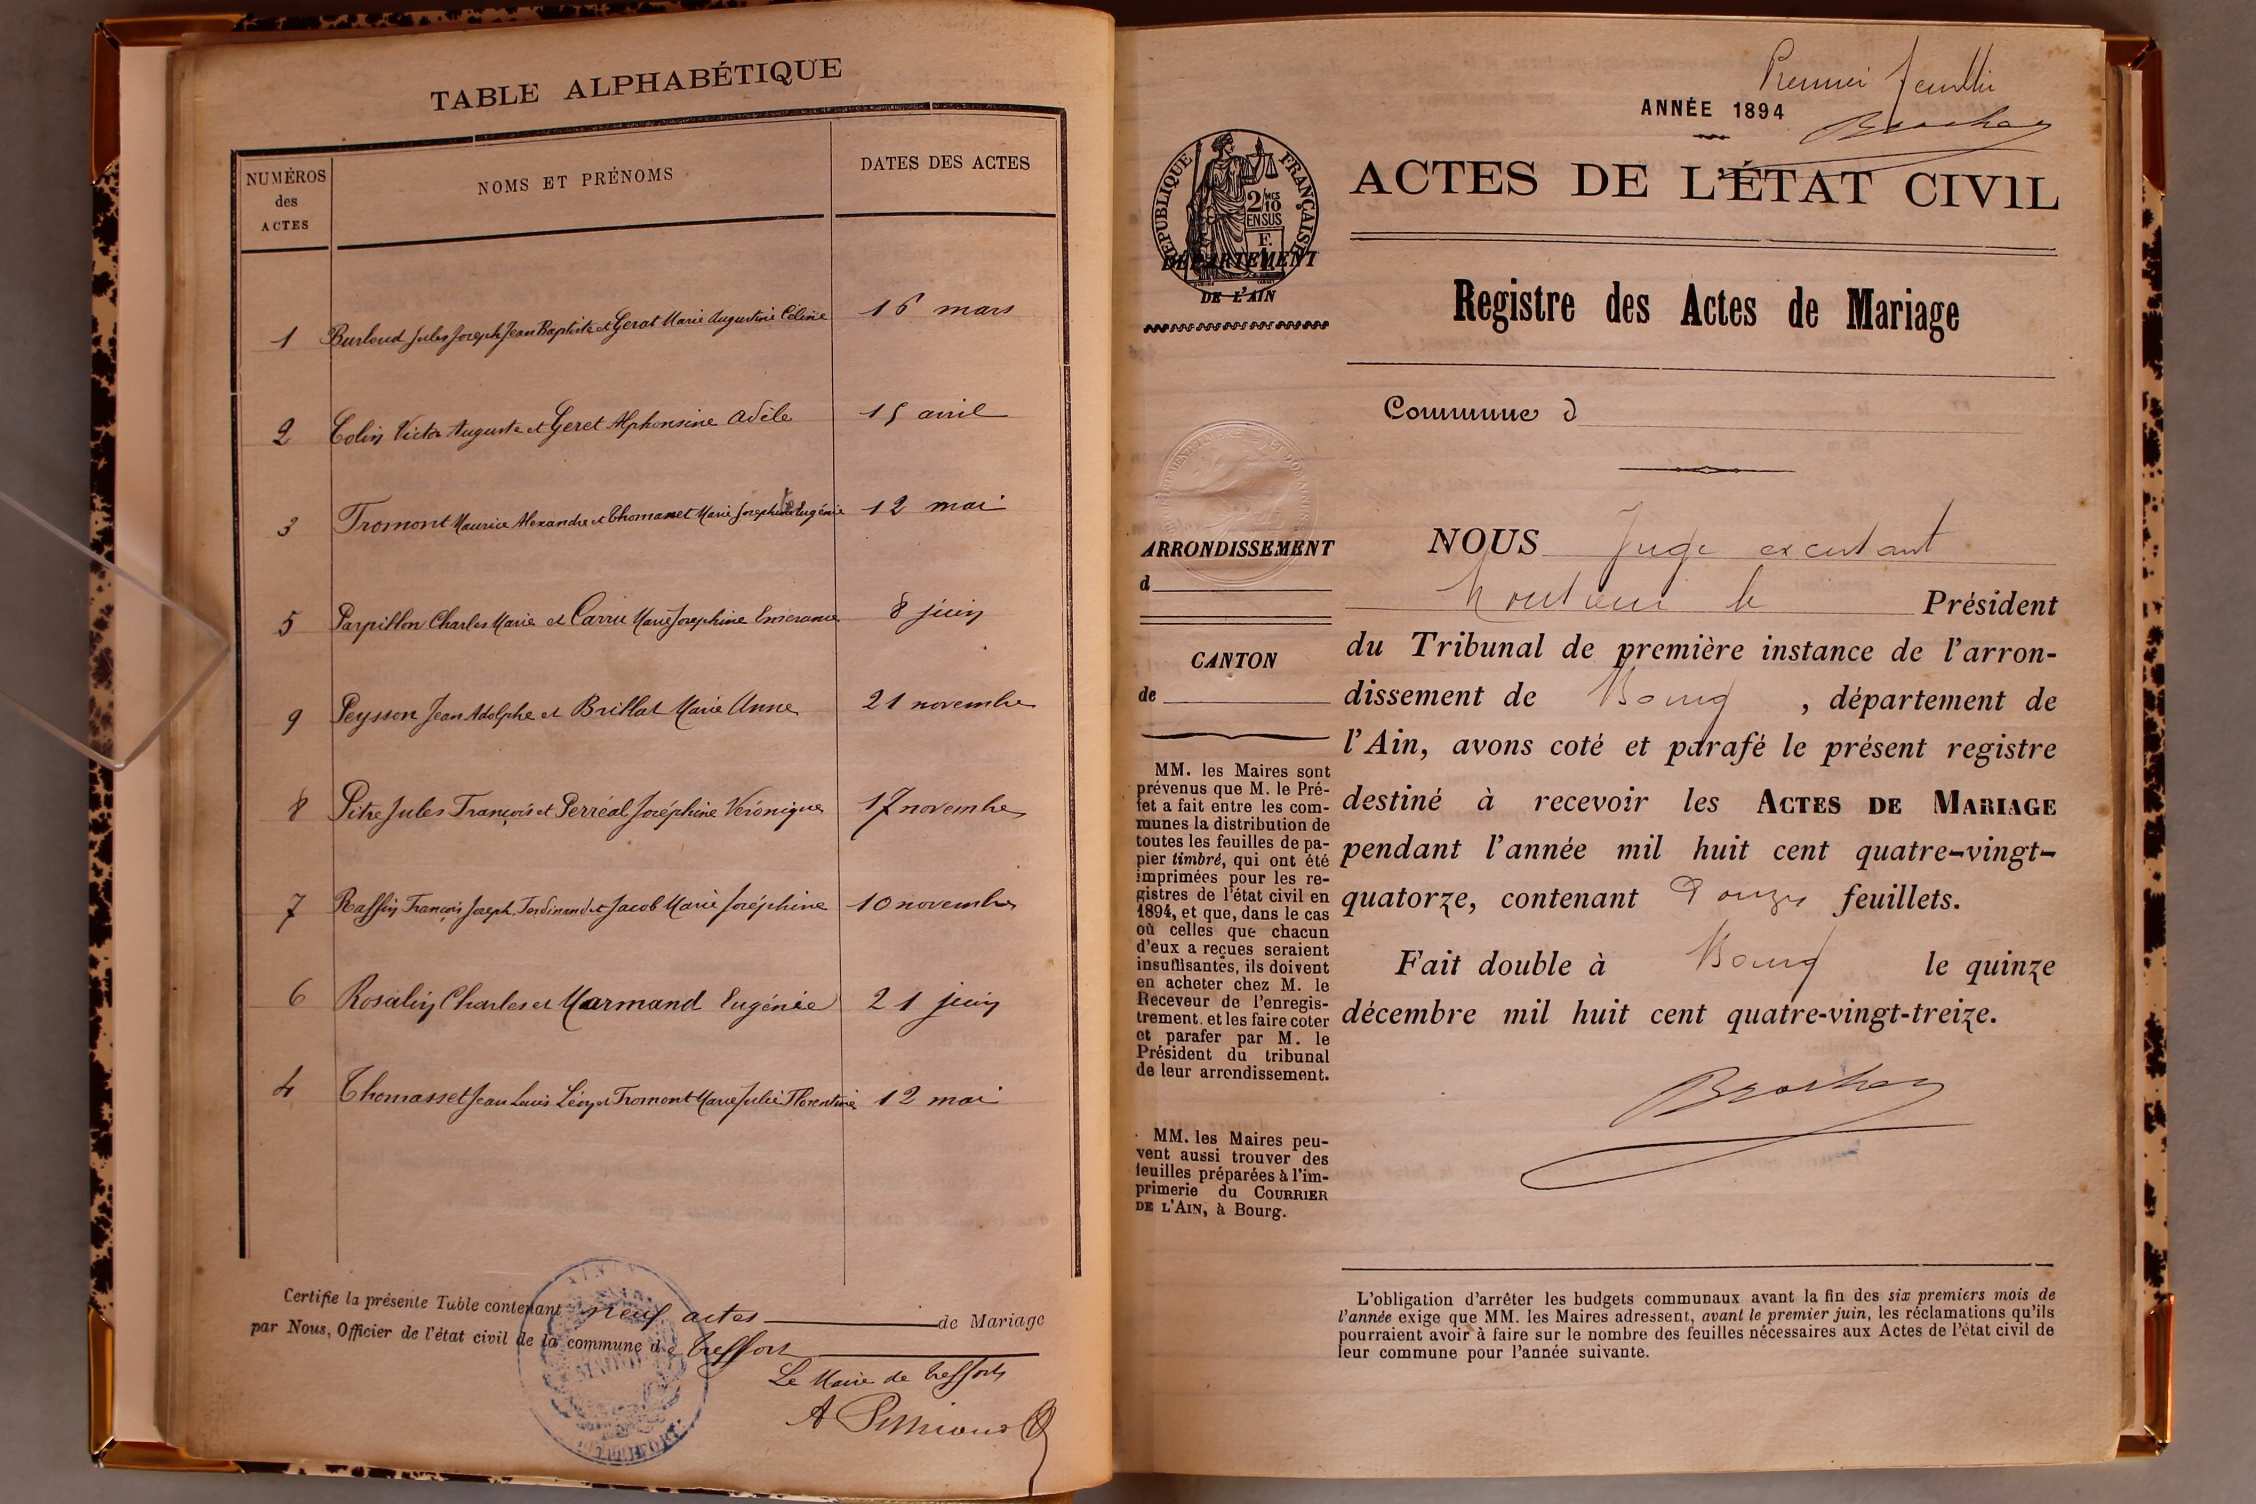 TABLE ALPHABÉTIQUE
NUMÉROS des ACTES
NOMS ET PRÉNOMS
DATES DES ACTES
1 Burloud Jules Joseph Jean Baptiste et Gerat Marie Augustine Céline 16 mars
2 Colin Victor Auguste et Geret Alphonsine Adèle 15 avril
3 Tromont Maurice Alexandre et Thomasset Marie Josephte Eugénie 12 mai
5 Parpillon Charles Marie et Carru Marie Josephine 8 juin
9 Peysson Jean Adolphe et Brillat Marie Anne 21 novembre
8 Pitre Jules François et Perréal Joséphine Véronique 17 novembre
7 Raffin François Joseph Ferdinand et Jacob Marie Joséphine 10 novembre
6 Rosalin Charles et Marmand Eugénie 21 juin
4 Thomasset Jean Louis Léon et Tromont Marie Julie Florentine 12 mai
Certifie la présente Table contenant neuf actes de Mariage
par Nous, Officier de l'état civil de la commune de Treffort
Le Maire de Treffort
Premier feuillet
ANNÉE 1894
RÉPUBLIQUE FRANÇAISE
2/10
EN SUS
DÉPARTEMENT
DE L'AIN
ACTES DE L'ÉTAT CIVIL
Registre des Actes de Mariage
Commune d
ARRONDISSEMENT
d
CANTON
de
MM. les Maires sont
prévenus que M. le Pré-
fet a fait entre les com-
munes la distribution de
toutes les feuilles de pa-
pier timbré, qui ont été
imprimées pour les re-
gistres de l'état civil en
1894, et que, dans le cas
où celles que chacun
d'eux a reçues seraient
insuffisantes, ils doivent
en acheter chez M. le
Receveur de l'enregis-
trement, et les faire coter
et parafer par M. le
Président du tribunal
de leur arrondissement.
MM. les Maires peu-
vent aussi trouver des
feuilles préparées à l'im-
primerie du COURRIER
DE L'AIN, à Bourg.
NOUS Juge
le Président
du Tribunal de première instance de l'arron-
dissement de Bourg , département de
l'Ain, avons coté et parafé le présent registre
destiné à recevoir les ACTES DE MARIAGE
pendant l'année mil huit cent quatre-vingt-
quatorze, contenant Douze feuillets.
Fait double à Bourg le quinze
décembre mil huit cent quatre-vingt-treize.
L'obligation d'arrêter les budgets communaux avant la fin des six premiers mois de
l'année exige que MM. les Maires adressent, avant le premier juin, les réclamations qu'ils
pourraient avoir à faire sur le nombre des feuilles nécessaires aux Actes de l'état civil de
leur commune pour l'année suivante.